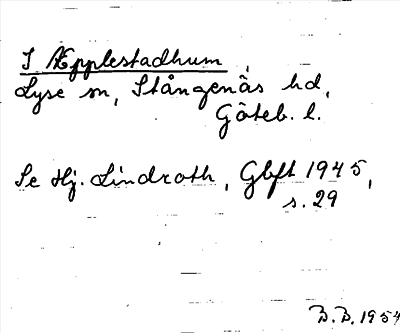 I Æpplestadhum,
Lyse sn, Stångenäs hd,
Göteb. l.
Se Hj. Lindroth, Gbft 1945,
s. 29
B.B. 1954